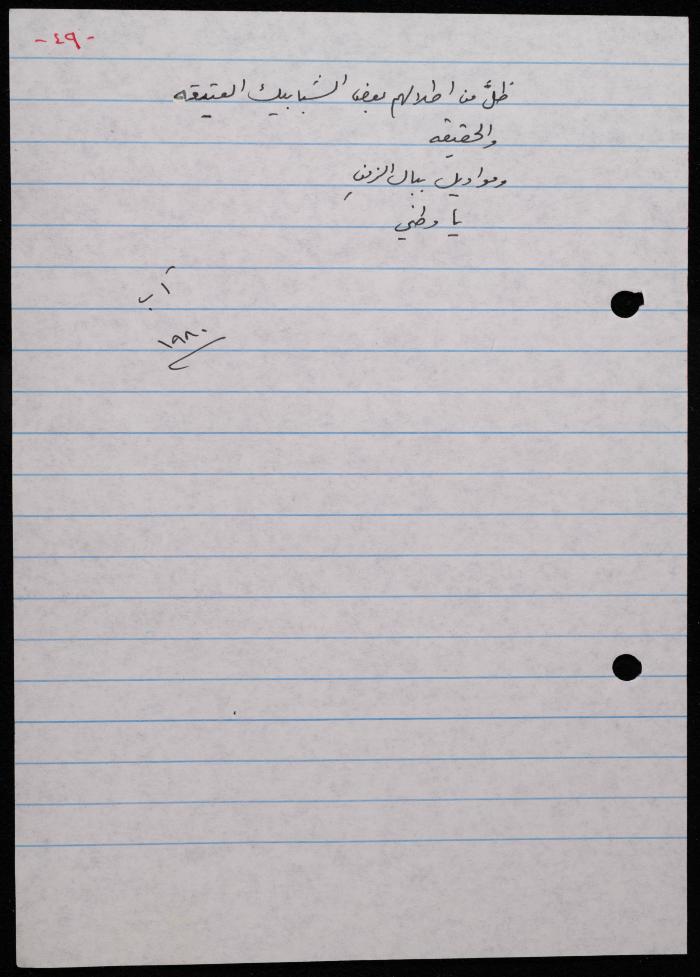 -٤٩-
ظلَّ من اطلالهم بعض الشبابيك العتيقه
والحقيقه
ومواويل ببال الزمنِ
يا وطني
آب
١٩٨٠